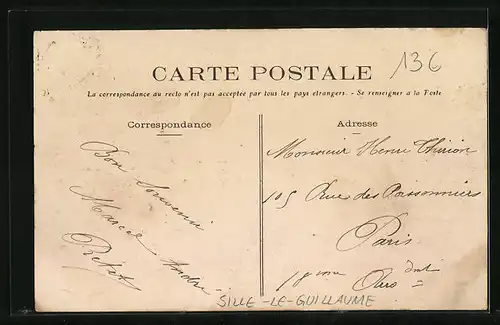 136
CARTE POSTALE
La correspondance au recto n'est pas acceptée par tous les pays étrangers. - Se renseigner à la Poste
Correspondance
Bon Souvenir
Marcel André
Adresse
Monsieur Henri Thirion
105 Rue des Poissonniers
Paris
18 eme
SILLE-LE-GUILLAUME